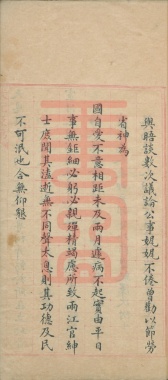 與晤談數次議論公事娓娓不倦曾勸以節勞
省神為
國自愛不意相距未及兩月遽病不起實由平日
事無鉅細必躬必親殫精竭慮所致兩江官紳
士庶聞其溘逝無不同聲太息則其功德及民
不可泯也合無仰懇